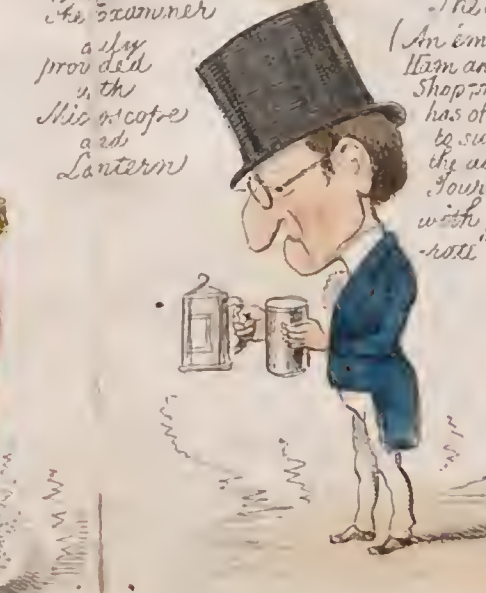 The Examiner
duly
provided
with
Microscope
and
Lantern
(An em
Ham an
Shop
has of
to su
the
Your
with
-rote"